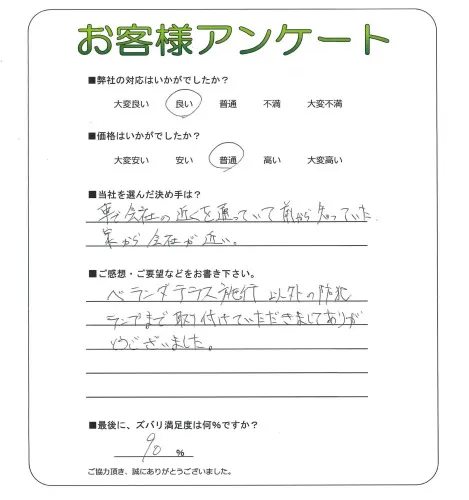 お客様アンケート
■弊社の対応はいかがでしたか？
大変良い 良い 普通 不満 大変不満
■価格はいかがでしたか？
大変安い 安い 普通 高い 大変高い
■当社を選んだ決め手は？
車で会社の近くを通っていて前から知っていた
家から会社が近い。
■ご感想・ご要望などをお書き下さい。
ベランダテラス施行 以外の防犯
ランプまで取り付けていただきましてありが
とうございました。
■最後に、ズバリ満足度は何%ですか？
90 %
ご協力頂き、誠にありがとうございました。